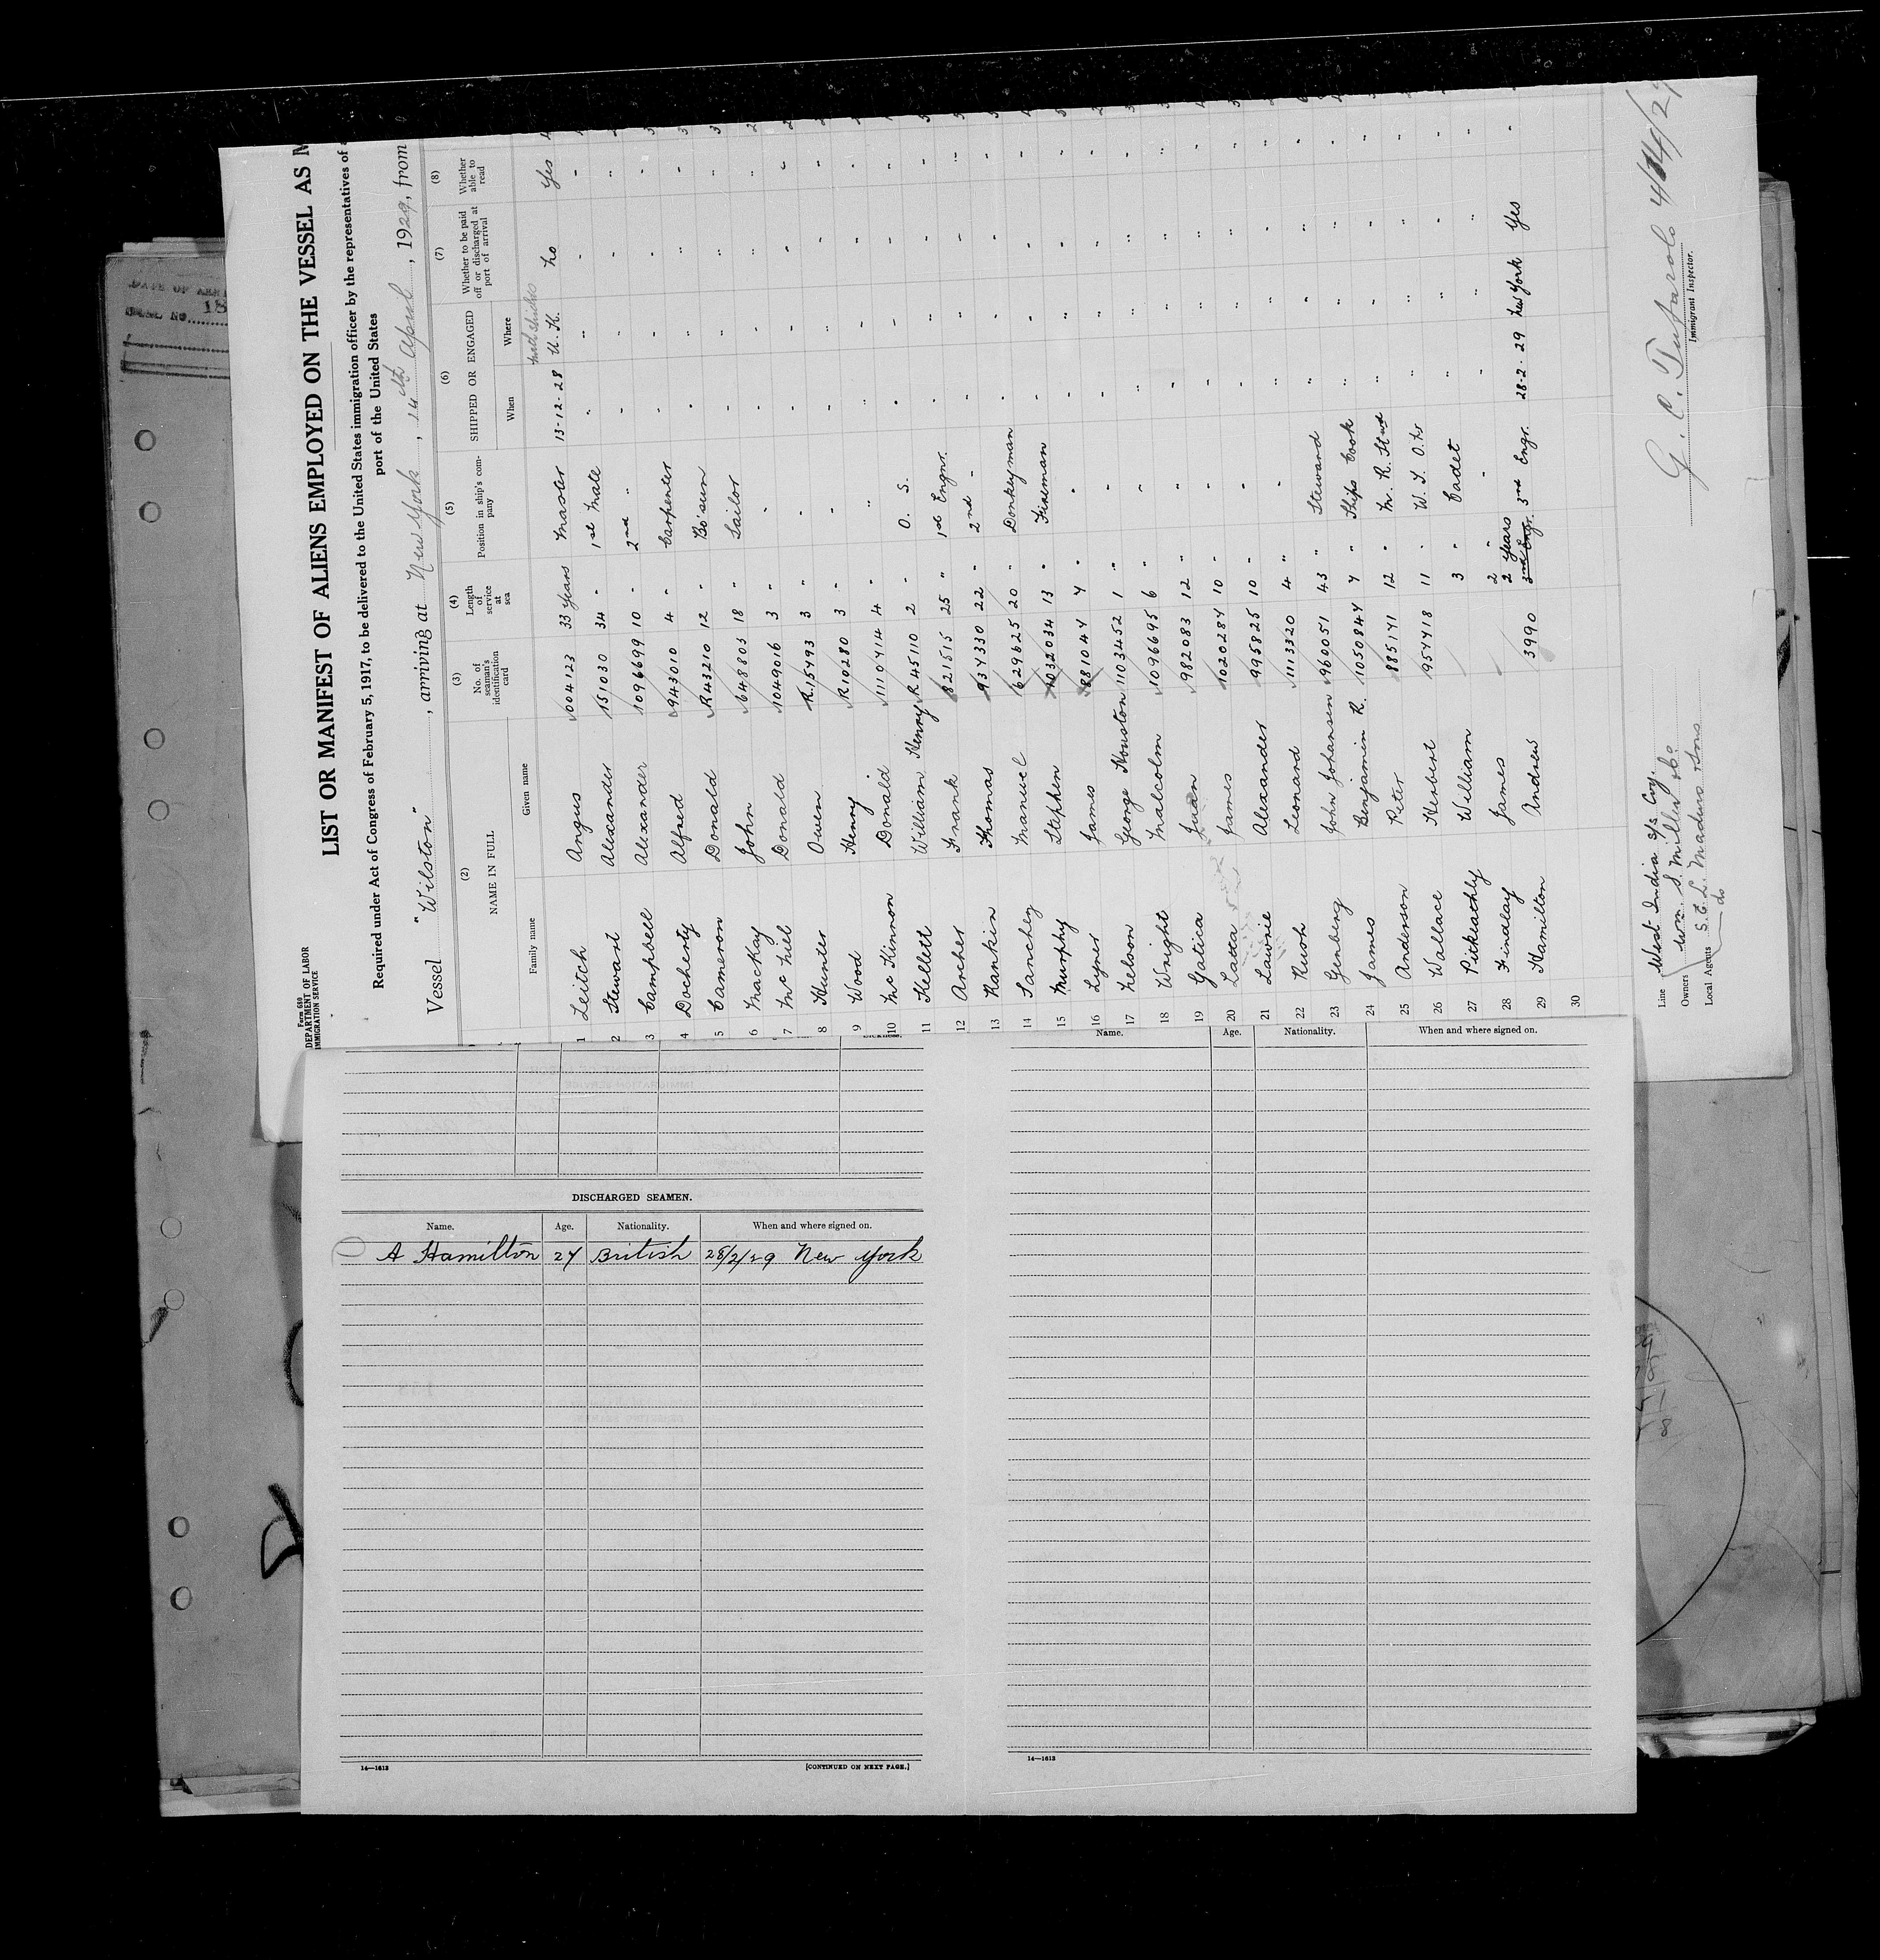 Form 680
DEPARTMENT OF LABOR
IMMIGRATION SERVICE
LIST OR MANIFEST OF ALIENS EMPLOYED ON THE VESSEL AS M
Required under Act of Congress of February 5, 1917, to be delivered to the United States immigration officer by the representatives of a
port of the United States
Vessel "Wilston", arriving at New York, 14th April, 1929, from
(2) (3) (4) (5) (6) (7) (8)
NAME IN FULL No. of seaman's identification card Length of service at sea Position in ship's company SHIPPED OR ENGAGED Whether to be paid off or discharged at port of arrival Whether able to read
Family name Given name When Where
1 Leitch Angus 004123 33 Years Master 13-12-28 U.K. No Yes
2 Stewart Alexander 151030 34 " 1st Mate " " " "
3 Campbell Alexander 1096699 10 " 2nd " " " " "
4 Docherty Alfred 943010 4 " Carpenter " " " "
5 Cameron Donald R43210 12 " Bo'sun " " " "
6 MacKay John 648805 18 " Sailor " " " "
7 McNiel Donald 1049016 3 " " " " " "
8 Hunter Owen R.15493 3 " " " " " "
9 Wood Henry R10280 3 " " " " " "
10 McKinnon Donald 1110714 4 " " " " " "
11 Kellett William Henry R45110 2 " O. S. " " " "
12 Archer Frank 821515 25 " 1st Engnr. " " " "
13 Rankin Thomas 934330 22 " 2nd " " " " "
14 Sanchez Manuel 629625 20 " Donkeyman " " " "
15 Murphy Stephen 1032034 13 " Fireman " " " "
16 Lyner James 881044 4 " " " " " "
17 Nelson George Houston 1103452 1 " " " " " "
18 Wright Malcolm 1096695 6 " " " " " "
19 Gatica Juan 982083 12 " " " " " "
20 Latta James 1020284 10 " " " " " "
21 Lawrie Alexander 995825 10 " " " " " "
22 Rush Leonard 1113320 4 " " " " " "
23 Genberg John Johansen 960051 43 " Steward " " " "
24 James Benjamin R. 1050844 7 " Ships Cook " " " "
25 Anderson Peter 885171 12 " M. R. Stwd " " " "
26 Wallace Herbert 954418 11 " W. T. O.tr " " " "
27 Pitkeathly William 3 " Cadet " " " "
28 Findlay James 2 " " " " " "
29 Hamilton Andrew 3990 2 Years 3rd Engr. 28-2-29 New York Yes "
30
Line West India S/s Coy.
Owners Wm. S. Miller & Co.
Local Agents S. E. L. Maduro & Sons
do
G. C.
Immigrant Inspector.
4/14/29
Name. Age. Nationality. When and where signed on.
DISCHARGED SEAMEN.
Name. Age. Nationality. When and where signed on.
A Hamilton 27 British 28/2/29 New York
14—1613 [CONTINUED ON NEXT PAGE.]
14—1613